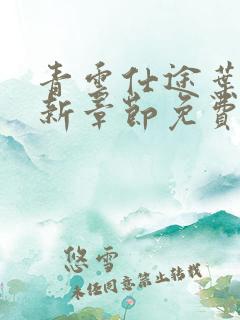 青雲仕途葉
新章節免費
悠雪
未经同意禁止转载